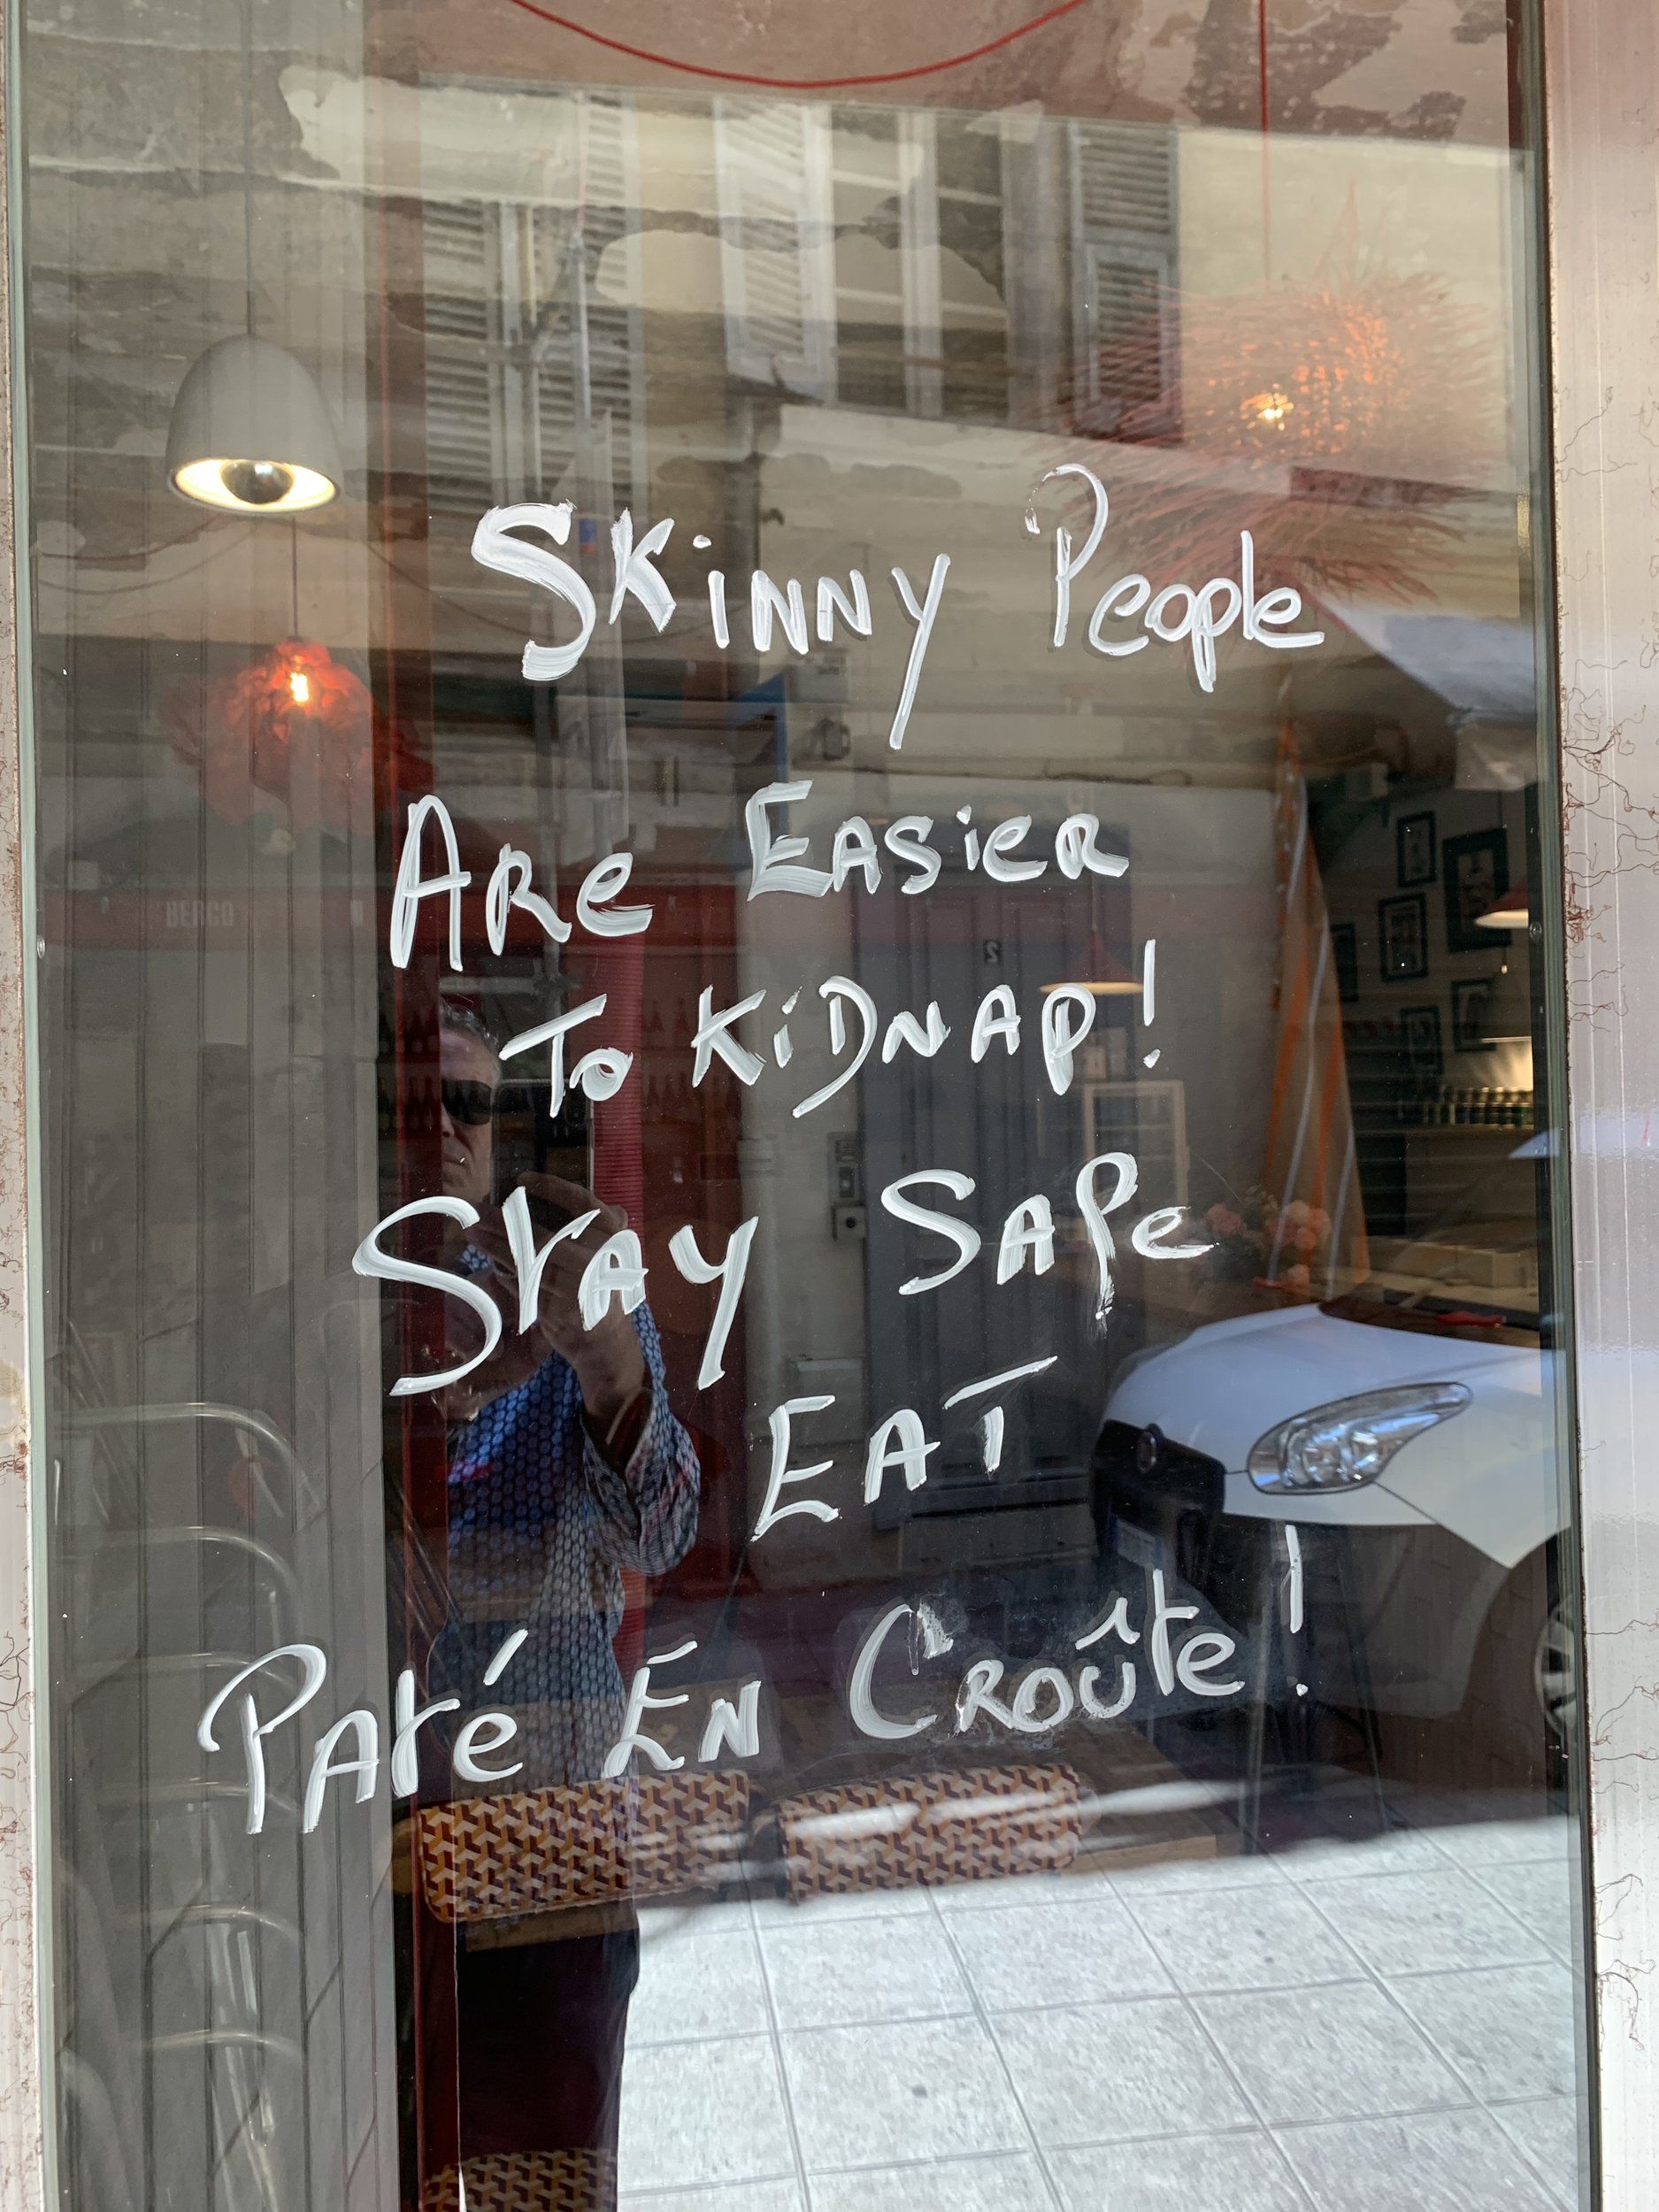 Skinny People
Are Easier
To Kidnap!
Stay Safe
Eat
Paté En Croûte!
BERGO
2